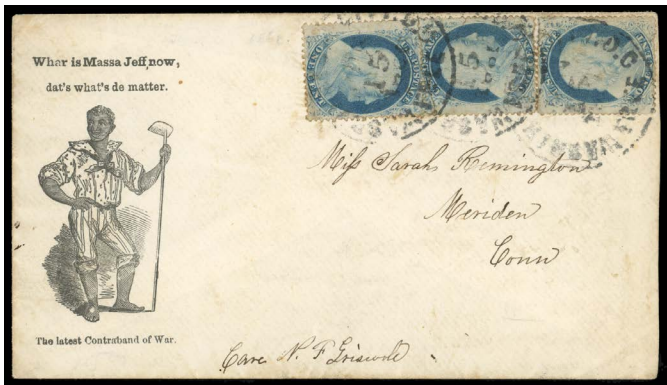 Whar is Massa Jeff, now,
dat's what's de matter.
The latest Contraband of War.
Miss Sarah Remington
Meriden
Conn
Care N. F. Griswold